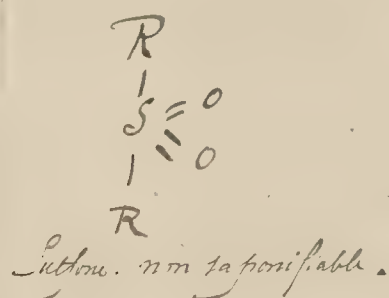 R
S = O
= O
R
Sulfone. non saponifiable.